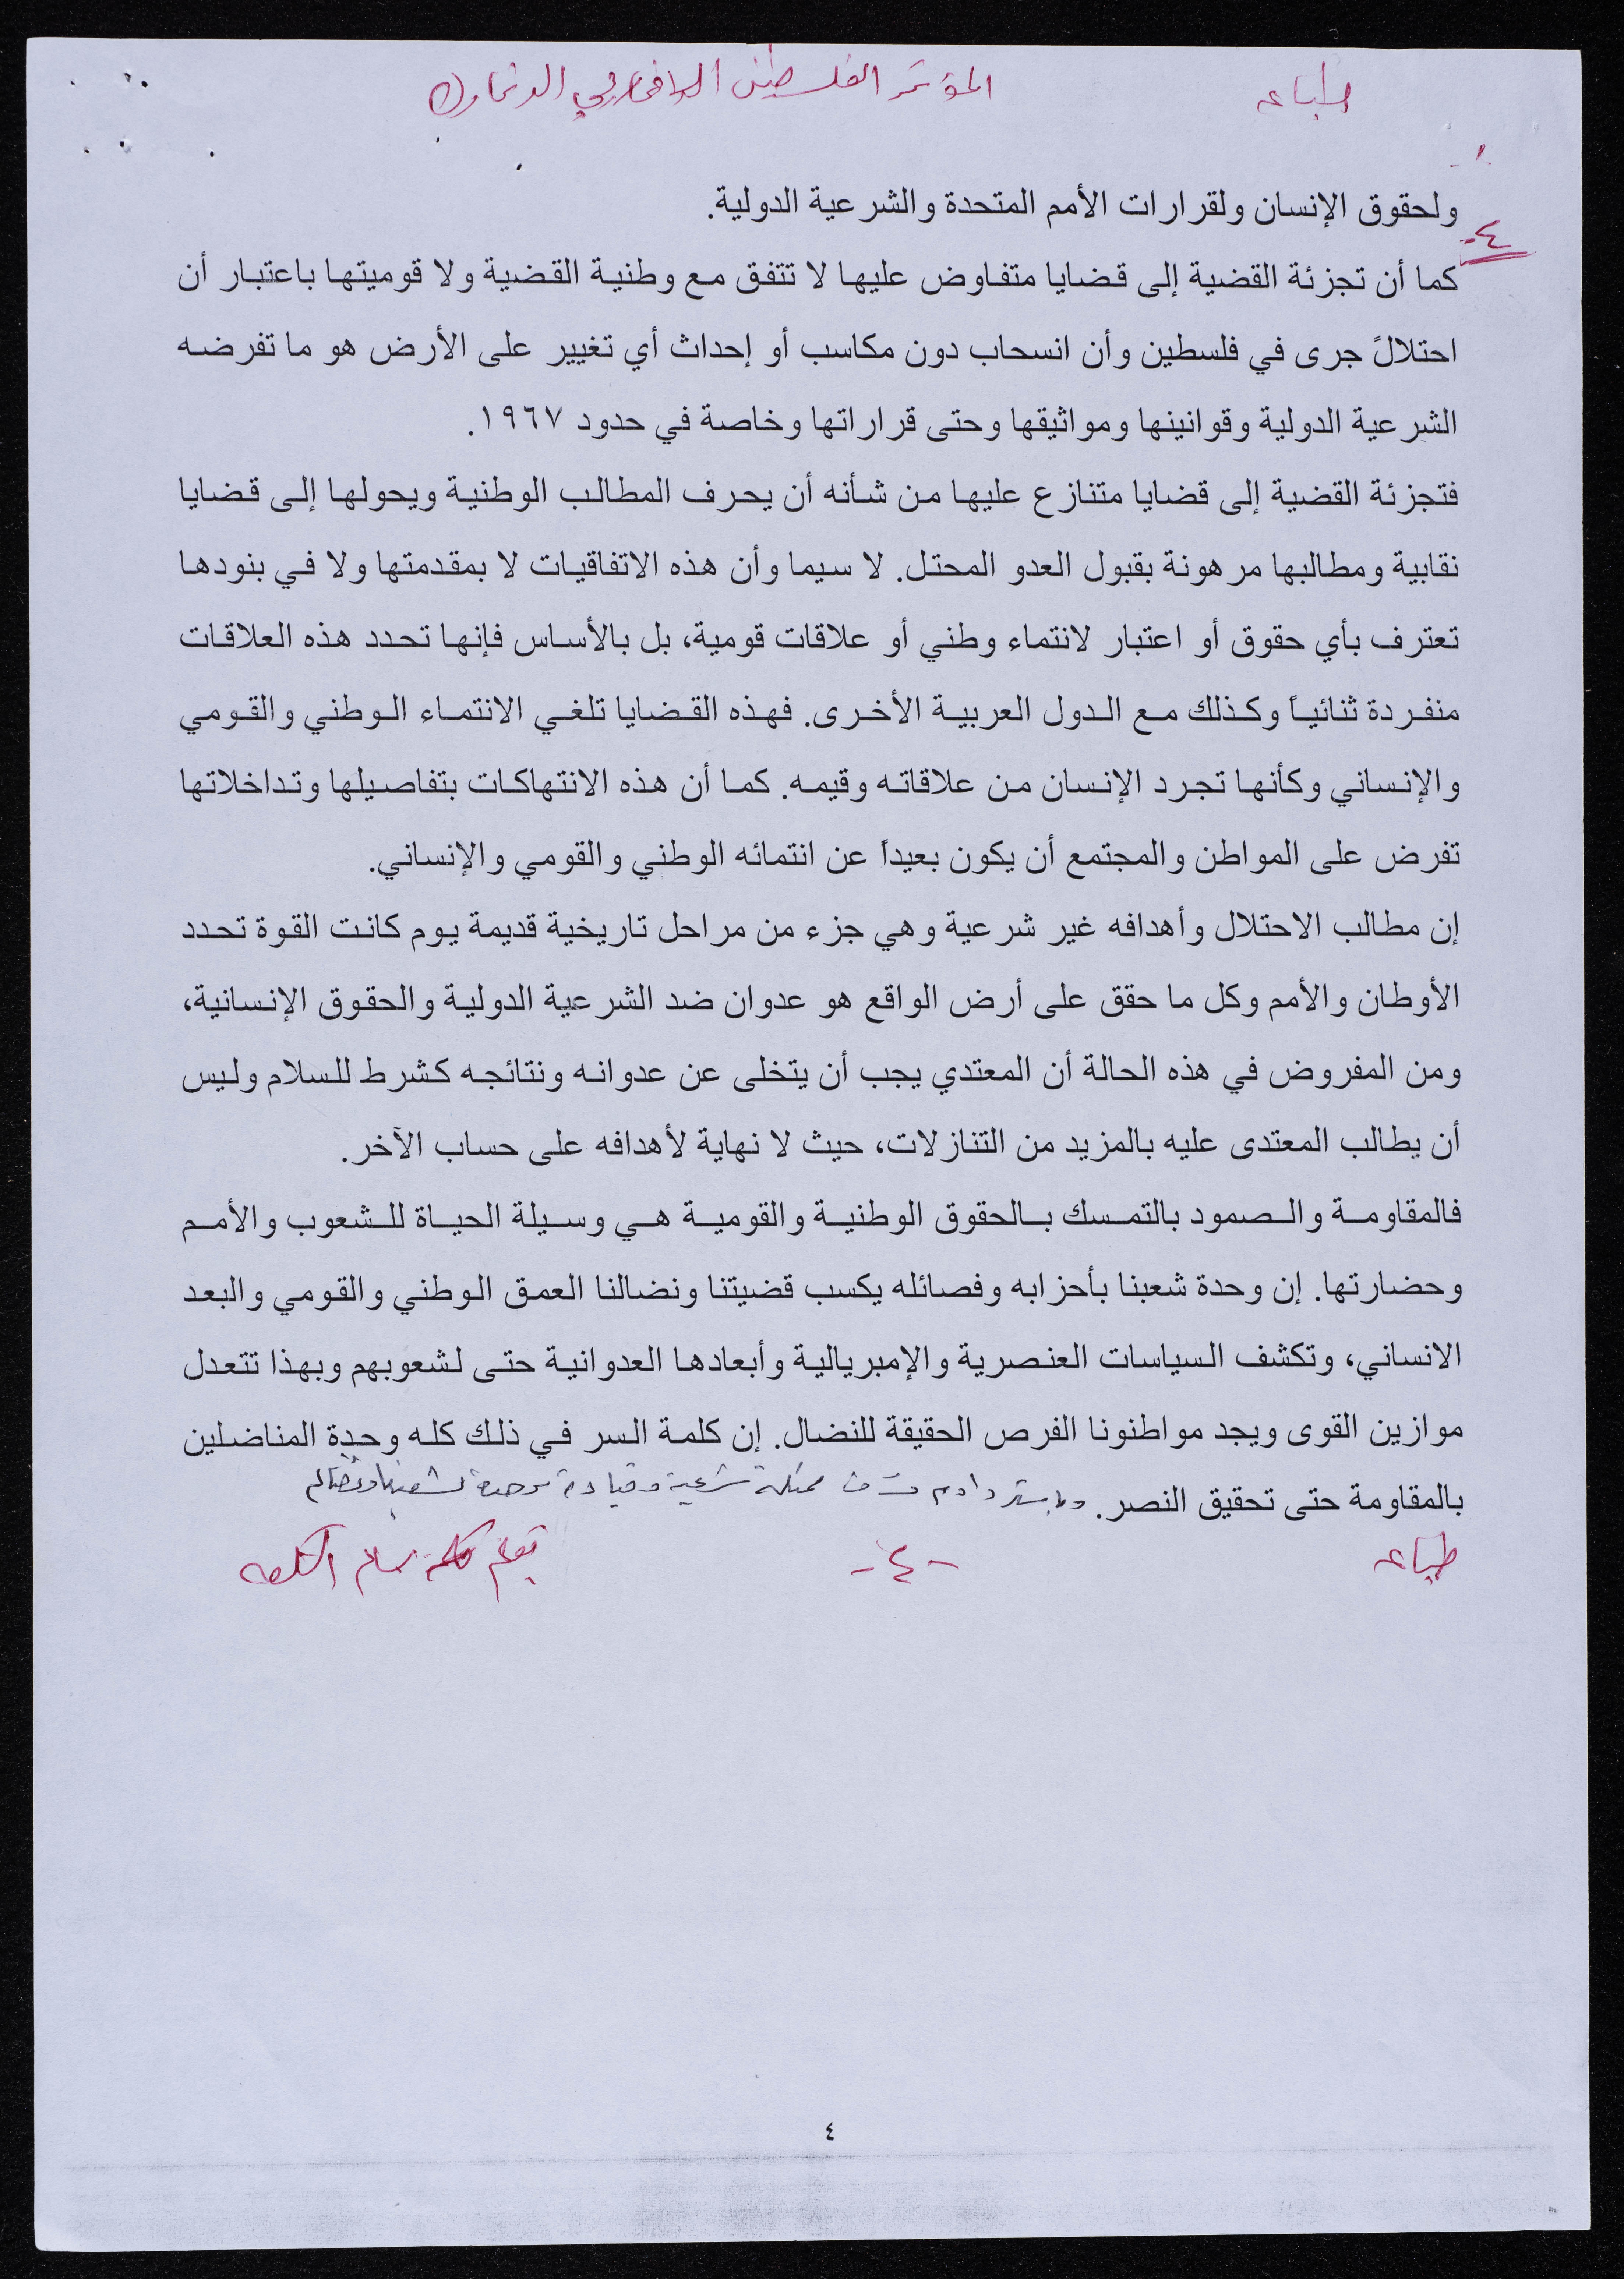 طباعه
المؤتمر الفلسطيني الدنمارك
-٤
ولحقوق الإنسان ولقرارات الأمم المتحدة والشرعية الدولية.
كما أن تجزئة القضية إلى قضايا متفاوض عليها لا تتفق مع وطنية القضية ولا قوميتها باعتبار أن
احتلالً جرى في فلسطين وأن انسحاب دون مكاسب أو إحداث أي تغيير على الأرض هو ما تفرضه
الشرعية الدولية وقوانينها ومواثيقها وحتى قراراتها وخاصة في حدود ١٩٦٧.
فتجزئة القضية إلى قضايا متنازع عليها من شأنه أن يحرف المطالب الوطنية ويحولها إلى قضايا
نقابية ومطالبها مرهونة بقبول العدو المحتل. لا سيما وأن هذه الاتفاقيات لا بمقدمتها ولا في بنودها
تعترف بأي حقوق أو اعتبار لانتماء وطني أو علاقات قومية، بل بالأساس فإنها تحدد هذه العلاقات
منفردة ثنائياً وكذلك مع الدول العربية الأخرى. فهذه القضايا تلغي الانتماء الوطني والقومي
والإنساني وكأنها تجرد الإنسان من علاقاته وقيمه. كما أن هذه الانتهاكات بتفاصيلها وتداخلاتها
تفرض على المواطن والمجتمع أن يكون بعيداً عن انتمائه الوطني والقومي والإنساني.
إن مطالب الاحتلال وأهدافه غير شرعية وهي جزء من مراحل تاريخية قديمة يوم كانت القوة تحدد
الأوطان والأمم وكل ما حقق على أرض الواقع هو عدوان ضد الشرعية الدولية والحقوق الإنسانية،
ومن المفروض في هذه الحالة أن المعتدي يجب أن يتخلى عن عدوانه ونتائجه كشرط للسلام وليس
أن يطالب المعتدى عليه بالمزيد من التنازلات، حيث لا نهاية لأهدافه على حساب الآخر.
فالمقاومة والصمود بالتمسك بالحقوق الوطنية والقومية هي وسيلة الحياة للشعوب والأمم
وحضارتها. إن وحدة شعبنا بأحزابه وفصائله يكسب قضيتنا ونضالنا العمق الوطني والقومي والبعد
الانساني، وتكشف السياسات العنصرية والإمبريالية وأبعادها العدوانية حتى لشعوبهم وبهذا تتعدل
موازين القوى ويجد مواطنونا الفرص الحقيقة للنضال. إن كلمة السر في ذلك كله وحدة المناضلين
بالمقاومة حتى تحقيق النصر. شرعية وقيادة موحدة لشعبنا
طباعه
-٤-
بقلم
٤